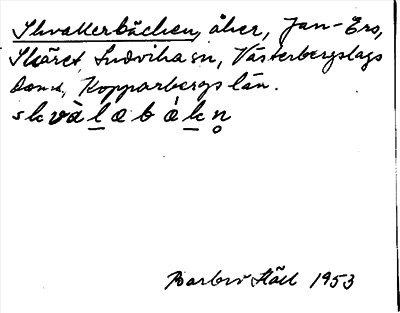 Skvallerbäcken, åker, Jan-Ers,
Skäret, Ludvika sn, Västerbergslags
doms, Kopparbergs län.
skvàlǝbákn̥
Barbro Häll 1953